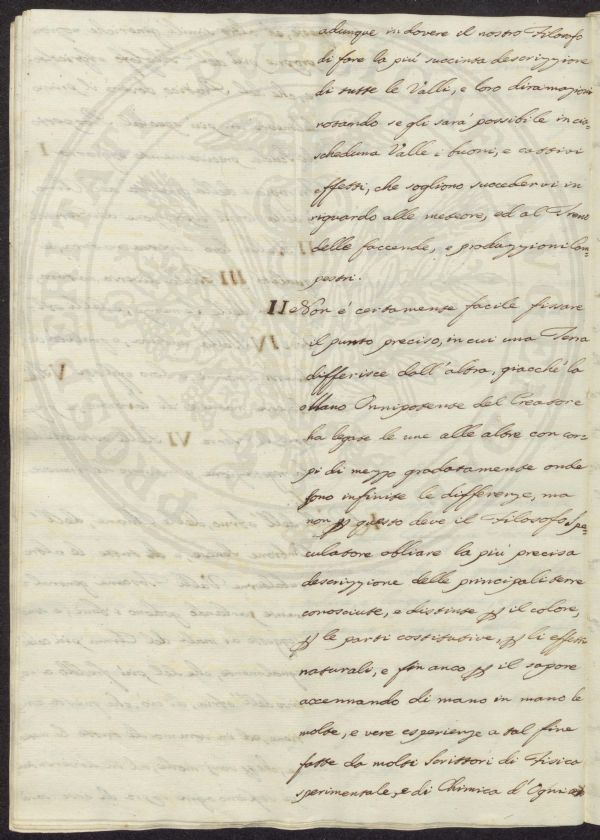 adunque in dovere il nostro Filosofo
di fare la più succinta descrizzione
di tutte le Valli, e loro diramazioni
notando se gli sarà possibile in cia-
scheduna Valle i buoni, e cattivi
effetti, che sogliono succedervi in
riguardo alle meteore, ed al Treno
delle faccende, e produzzioni Cam-
pestri.
II Non è certamente facile fissare
il punto preciso, in cui una Terra
differisce dall'altra, giacchè la
Mano Onnipotente del Creatore
ha legate le une alle altre con cor-
pi di mezzo gradatamente onde
sono infinite le differenze, ma
non p questo deve il Filosofo Spe-
culatore obliare la più precisa
descrizzione delle principali terre
conosciute, e distinte p il colore,
p le parti costitutive, p li effetti
naturali, e fin anco p il sapore
accennando di mano in mano le
molte, e vere esperienze a tal fine
fatte da molti Scrittori di Fisica
sperimentale, e di Chimica d'Ogni